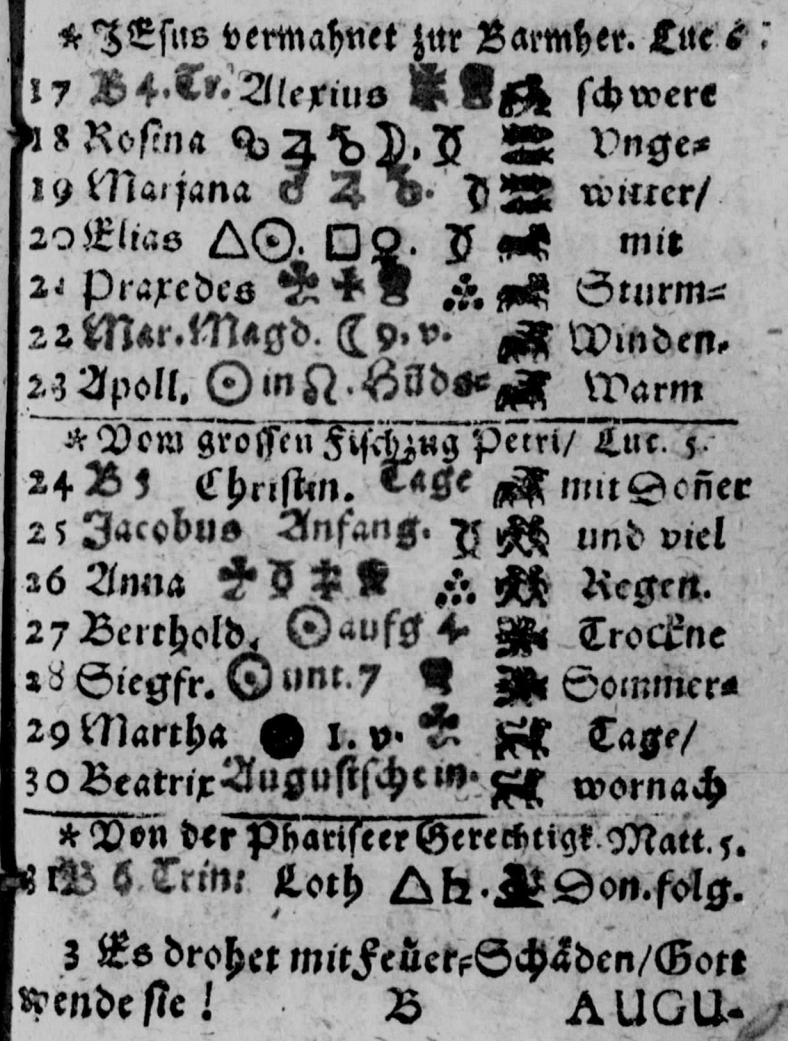 * JEsus vermahnet zur Barmher. Luc 6.
17 B 4. Tr. Alexius schwere
18 Rosina ☍ ♃ ♄ ☽. ☿ Vnge⸗
19 Marjana ♂ ♃ ♄. ☿ witter/
20 Elias △☉. □♀. ☿ mit
21 Praxedes Sturm⸗
22 Mar. Magd. ☾ 9. v. Winden.
23 Apoll. ☉ in ♌. Hūds⸗ Warm
* Vom grossen Fischzug Petri/ Luc. 5.
24 B 5 Christin. Tage mit Don̄er
25 Jacobus Anfang. ☿ und viel
26 Anna ☿ Regen.
27 Berthold. ☉ aufg 4 Trockne
28 Siegfr. ☉ unt. 7 Sommer⸗
29 Martha ● 1. v. Tage/
30 Beatrix Augustschein. wornach
* Von der Phariseer Gerechtigk. Matt. 5.
31 B 6 Trin: Loth △ ♄. Don. folg.
3 Es drohet mit Feuer⸗Schäden/ Gott
wende sie !
B AUGU-